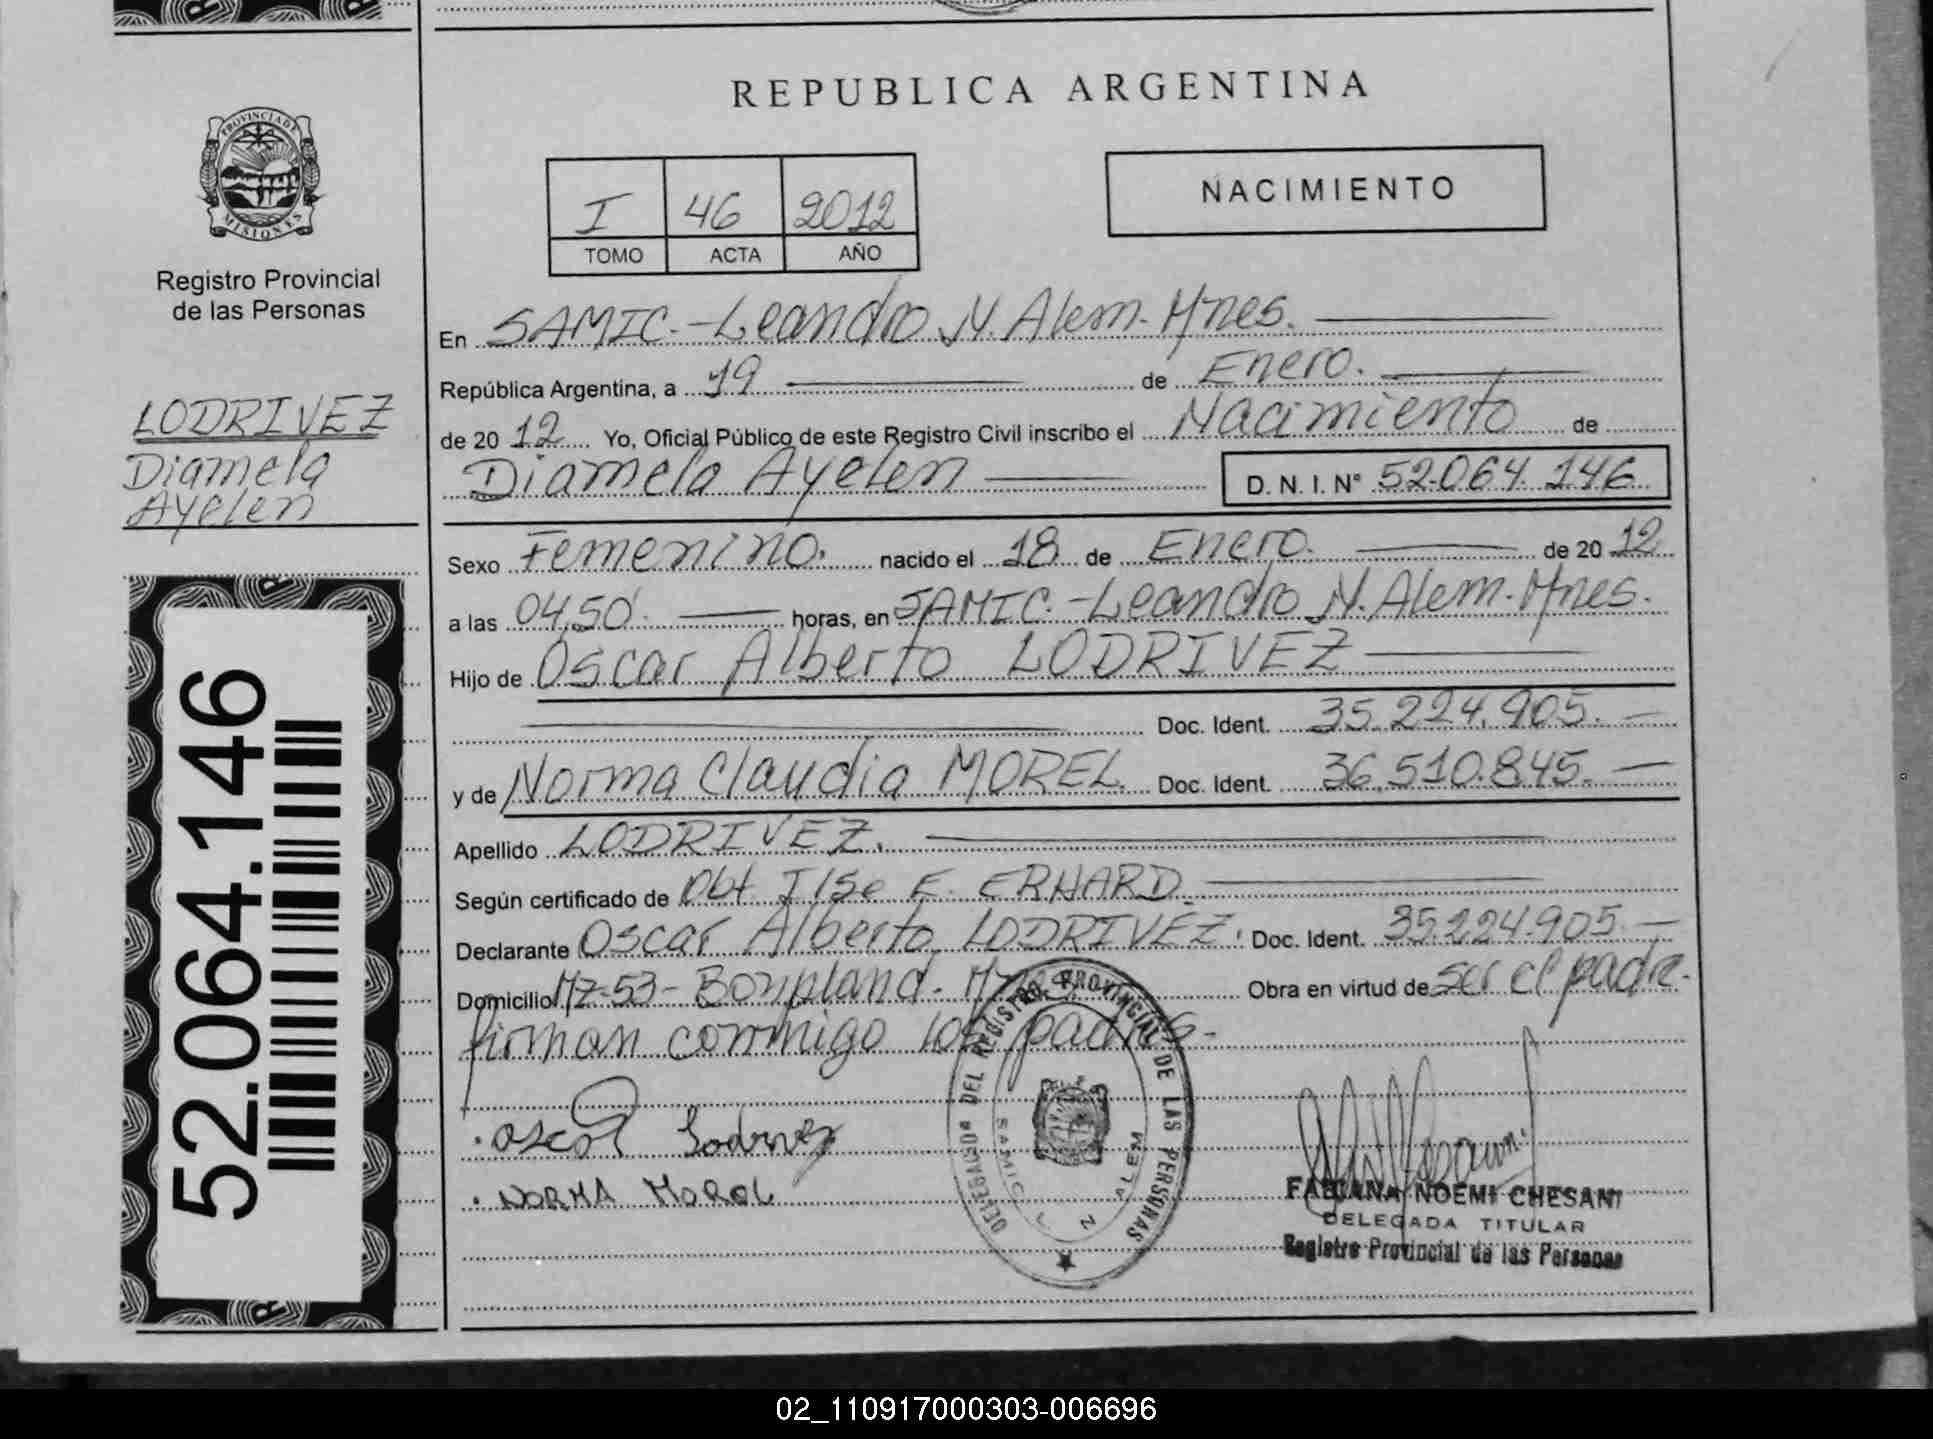 REPUBLICA ARGENTINA
PROVINCIA DE
MISIONES
Registro Provincial
de las Personas
I 46 2012
TOMO ACTA AÑO
NACIMIENTO
LODRIVEZ
Diamela
Ayelen
52.064.146
En SAMIC.-Leandro N. Alem. Mnes.
República Argentina, a 19 de Enero.
de 2012 Yo, Oficial Público de este Registro Civil inscribo el Nacimiento de
Diamela Ayelen D. N. I. N° 52.064.146
Sexo Femenino. nacido el 18 de Enero. de 2012
a las 04,50'. horas, en SAMIC.-Leandro N. Alem. Mnes.
Hijo de Oscar Alberto LODRIVEZ
Doc. Ident. 35.224.905.
y de Norma Claudia MOREL. Doc. Ident. 36.510.845.
Apellido LODRIVEZ.
Según certificado de Obt. Ilse E. ERHARD.
Declarante Oscar Alberto LODRIVEZ. Doc. Ident. 35.224.905.
Domicilio Mz-53- Bonpland. Obra en virtud de ser el padre-
firman conmigo los padres-
Oscar Lodrivez
NORMA MOREL
DELEGADO DEL REGISTRO PROVINCIAL DE LAS PERSONAS
SAMIC N ALEM
FABIANA NOEMI CHESANI
DELEGADA TITULAR
Registro Provincial de las Personas
02_110917000303-006696